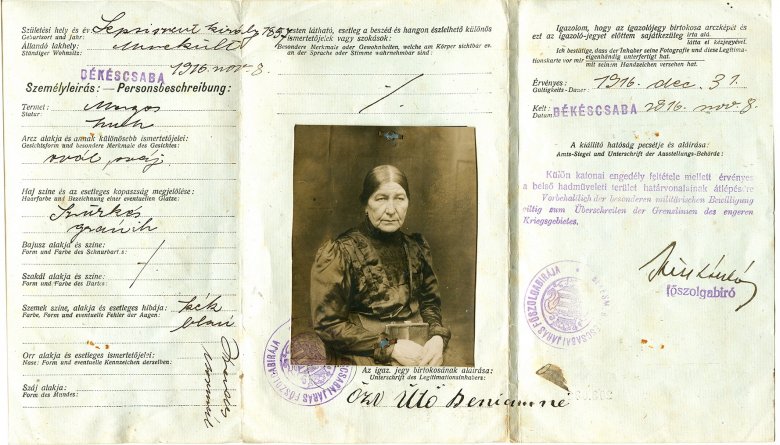 Születési hely és év
Geburtsort und Jahr:
Állandó lakhely:
Ständiger Wohnsitz:
BÉKÉSCSABA 1916 nov. 8.
Személyleírás: — Personsbeschreibung:
Termet: Magas
Statur:
Arcz alakja és annak különösebb ismertetőjelei:
Gesichtsform und besondere Merkmale des Gesichtes:
ovál
Haj színe és az esetleges kopaszság megjelölése:
Haarfarbe und Bezeichnung einer eventuellen Glatze:
Szürkés
Bajusz alakja és színe:
Form und Farbe des Schnurbarts:
Szakál alakja és színe:
Form und Farbe des Bartes:
Szemek színe, alakja és esetleges hibája: kék
Farbe, Form und eventuelle Fehler der Augen: blau
Orr alakja és esetleges ismertetőjelei:
Nase: Form und eventuelle Kennzeichen derselben:
Száj alakja:
Form des Mundes:
testen látható, esetleg a beszéd és hangon észlelhető különös
ismertetőjelek vagy szokások:
Besondere Merkmale oder Gewohnheiten, welche am Körper sichtbar ev.
an der Sprache oder Stimme wahrnehmbar sind:
Az igaz. jegy birtokosának aláírása:
Unterschrift des Legitimationsinhabers:
Özv Ütő
Igazolom, hogy az igazolójegy birtokosa arczképét és
ezt az igazoló-jegyet előttem sajátkezűleg irta alá.
látta el kézjegyével.
Ich bestätige, dass der Inhaber seine Fotografie und diese Legitima-
tionskarte vor mir eigenhändig unterfertigt hat.
mit seinem Handzeichen versehen hat.
Érvényes: 1916. dec. 31.
Gültigkeits-Dauer:
Kelt: BÉKÉSCSABA 1916 nov. 8.
Datum:
A kiállító hatóság pecsétje és aláírása:
Amts-Siegel und Unterschrift der Ausstellungs-Behörde:
Külön katonai engedély feltétele mellett érvényes
a belső hadműveleti terület határvonalainak átlépésére
Vorbehaltlich der besonderen militärischen Bewilligung
giltig zum Überschreiten der Grenzlinien des engeren
Kriegsgebietes.
főszolgabíró
CSABAI JÁRÁS FŐSZOLGABIRÁJA